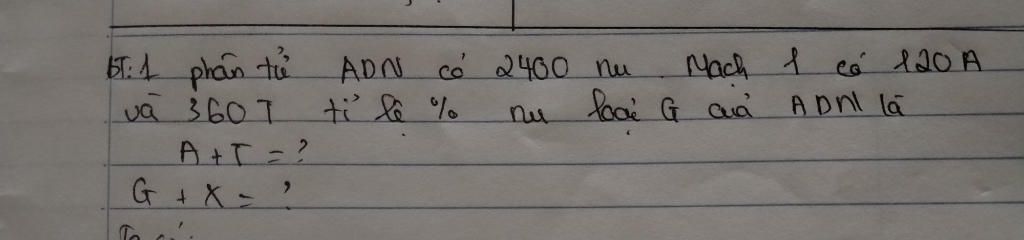 BT: 1 phân tử ADN có 2400 nu. Mạch 1 có 120A
và 360T tỉ lệ % nu loại G của ADN là
A + T = ?
G + X = ?